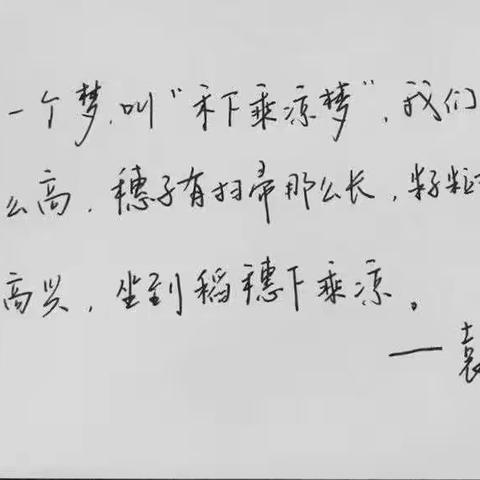 一个梦,叫“禾下乘凉梦”,我们
么高,穗子有扫帚那么长,籽粒
高兴,坐到稻穗下乘凉。
——袁